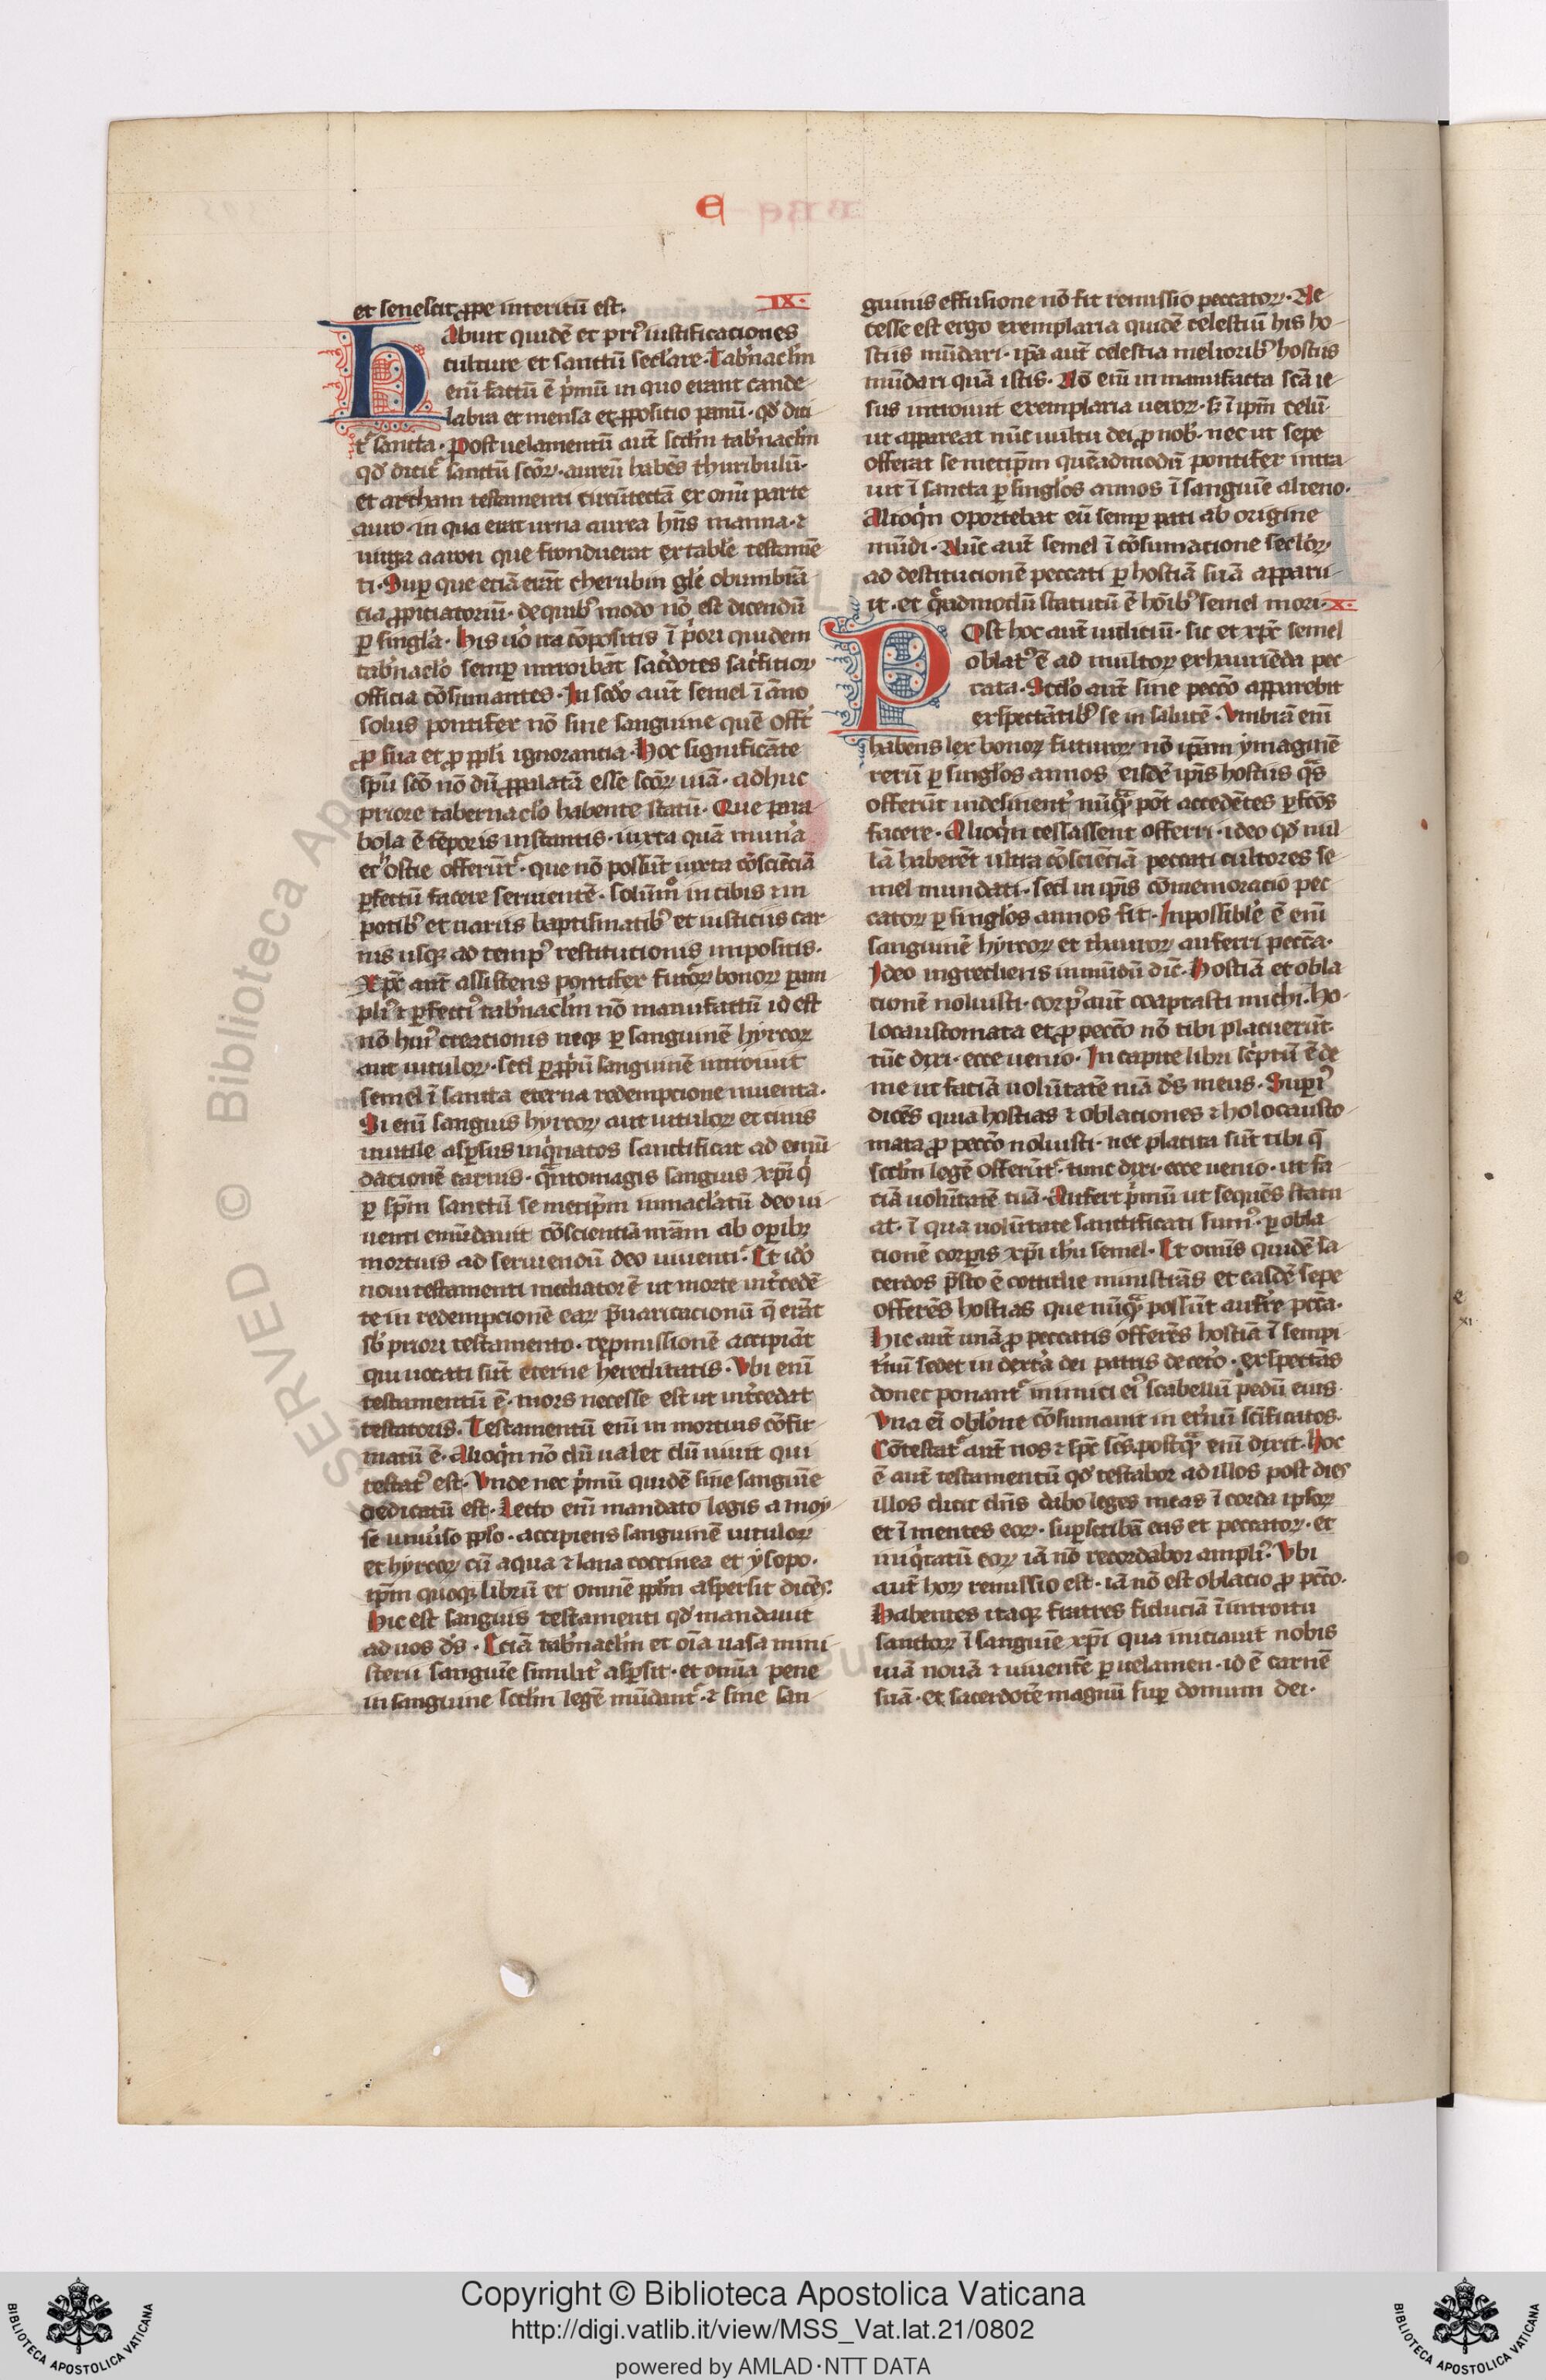 E
et senescit ꝓpe interitū est. IX.
HAbuit quidē et pri᷒ iustificaciones
culture et sanctū sec̄lare. Tab̓nac̄lm
enī factū ē p̓mū in quo erant cande-
labra et mensa et ꝓposicio panū. qd̓ dici
t᷑ sancta. Post velamentū aut̄ sc̄dm tab̓nac̄lm
qd̓ dicit᷑ sanctū sc̄oꝝ. aureū habēs thuribulū.
et archam testamenti circūtectā ex om̄i parte
auro. in qua erat urna aurea hn̄s manna. ⁊
uirga aaron que fronduerat ⁊ tabl̓e testamē
ti. Suꝑ que eciā erāt cherubin gl̓e obumbrā
cia ꝓpiciatoriū. de quib᷒ modo nō est dicendū
ꝑ singl̓a. His u̓o ita cōpositis ī p̓ori quidem
tab̓nac̄lo semꝑ introibāt sac̓dotes sac̓ficioꝝ
officia cōsumantes. In sc̄do aut̄ semel ī āno
solus pontifex nō sine sanguine quē off̓t
ꝓ sua et ꝓ ppl̓i ignorancia. Hoc significāte
spū sc̄o nō dū ꝓpalatā esse sc̄oꝝ uiā. adhuc
priore tabernac̄lo habente statū. Que para
bola ē tēporis instantis. iuxta quā mun̓a
et ostie offerūt᷑. que nō possūt iuxta cōsciēciā
ꝑfectū facere seruientē. solūmͦ in cibis ⁊ in
potib᷒ et uariis baptismatib᷒ et iusticiis car-
nis usqꝫ ad temp᷒ restitucionis impositis.
Xpc̄ aut̄ assistens pontifex futōꝝ bonoꝝ ꝑ am
pli᷒ ⁊ ꝑfecti᷒ tab̓nac̄lm nō manufactū id est
nō hui᷒ creacionis neqꝫ ꝑ sanguinē hyrcoꝝ
aut uituloꝝ. sed ꝑ ꝓpriū sanguinē introiuit
semel ī sancta eterna redempcione inuenta.
Si enī sanguis hyrcoꝝ aut uituloꝝ et cinis
uitule asꝑsus inq̓natos sanctificat ad emū
dacionē carnis. q̄ntomagis sanguis xp̄i q̓
ꝑ spm̄ sanctū semetip̄m inmac̄latū deo ui
uenti emūdauit cōscientiā nr̄am ab oꝑibꝫ
mortuis ad seruiendū deo uiuenti. Et id̓o
noui testamenti mediator ē ut morte int̓cedē
te in redempcionē eaꝝ p̄uaricacionū q̄ erāt
sb̓ priori testamento. repmissionē accipiāt
qui uocati sūt eterne hereditatis. Vbi enī
testamentū ē. mors necesse est ut int̓cedat
testatoris. Testamentū enī in mortuis cōfir
matū ē. Alioq̓n nō dū ualet dū uiuit qui
testat᷒ est. Vnde nec p̓mū quidē sine sanguīe
dedicatū est. Lecto enī mandato legis a moy
se uniu̓so ppl̓o. accipiens sanguinē uituloꝝ
et hyrcoꝝ cū aqua ⁊ lana coccinea et ysopo.
ip̄m quoqꝫ librū et omnē ppl̄m aspersit dicēs.
Hic est sanguis testamenti qd̓ mandauit
ad uos d̓s. Eciā tab̓nac̄lm et oīa uasa mini
sterii sanguīe similit̓ asꝑsit. et om̄ia pene
in sanguine sc̄dm legē mūdant᷑. ⁊ sine san-
guinis effusione nō fit remissio peccatoꝝ. Ne
cesse est ergo exemplaria quidē celestiū his ho-
stiis mūdari. ip̄a aut̄ celestia meliorib᷒ hostiis
mūdari quā istis. Nō enī in manufacta sc̄a ie-
sus introiuit exemplaria ueroꝝ. sꝫ ī ip̄m celū.
ut appareat nūc uultu dei ꝓ nob̓. nec ut sepe
offerat semetip̄m quēadmodū pontifex intra-
uit ī sancta ꝑ singl̓os annos ī sanguīe alieno.
Alioq̓n oportebat eū semꝑ pati ab origine
mūdi. Nūc aut̄ semel ī cōsumacione sec̄loꝝ.
ad destitucionē peccati ꝑ hostiā suā apparu-
it. et q̄admodū statutū ē hoīb᷒ semel mori. X.
POst hoc aut̄ iudiciū. sic et xpc̄ semel
oblat᷒ ē ad multoꝝ exhauriēda pec-
cata. Sc̄do aut̄ sine pecc̄o apparebit
exspectātib᷒ se in salutē. Vmbrā enī
habens lex bonoꝝ futuroꝝ nō ip̄am ymaginē
rerū ꝑ singl̓os annos eisdē ip̄is hostiis q̄s
offerūt indesinent̓ nūq̄ pōt accedētes ꝑfc̄os
facere. Alioq̓n cessassent offerri. ideo qd̓ nul-
lā haberēt ultra cōsciēciā peccati cultores se-
mel mundati. sed in ip̄is cōmemoracio pec-
catoꝝ ꝑ singl̓os annos fit. Inpossibl̓e ē enī
sanguinē hyrcoꝝ et thauroꝝ auferri pecc̄a.
Ideo ingrediens in mūdū dic̄. Hostiā et obla
cionē noluisti. corp᷒ aut̄ coaptasti michi. Ho-
locaustomata et ꝓ pecc̄o nō tibi placuerūt.
tūc dixi. ecce uenio. In capite libri sc̓ptū ē de
me ut faciā uolūtatē tuā d̓s meus. Superi᷒
dicēs quia hostias ⁊ oblationes ⁊ holocausto-
mata ꝓ pecc̄o noluisti. nec placita sūt tibi q̄
sc̄dm legē offerūt᷑. tunc dixi. ecce uenio. ut fa-
ciā uolūtatē tuā. Aufert p̓mū ut sequēs statu
at. ī qua uolūtate sanctificati sum᷒. ꝑ obla
cionē corꝑis xp̄i ih̄u semel. Et omīs quidē sa
cerdos p̄sto ē cottidie ministrās et easdē sepe
offerēs hostias que nūq̄ possūt aufr̄e pc̄cā.
Hic aut̄ unā ꝓ peccatis offerēs hostiā ī sempi
t̓nū sedet in dext̓a dei patris de cet̓o. exspectās
donec ponant᷑ inimici ei᷒ scabellū pedū eius.
Vna eī obl̓one cōsumauit in et̓nū sc̄ificatos.
Cōtestat᷑ aut̄ nos ⁊ spc̄ sc̄s. postq̄ enī dixit. Hoc
ē aut̄ testamentū qd̓ testabor ad illos post dies
illos dicit dn̄s dabo leges meas ī corda ipsoꝝ
et ī mentes eoꝝ. suꝑscribā eas et peccatoꝝ. et
iniq̓tatū eoꝝ iā nō recordabor ampli᷒. Vbi
aut̄ hoꝝ remissio est. iā nō est oblacio ꝓ pc̄co.
Habentes itaqꝫ fratres fiduciā ī introitu
sanctoꝝ ī sanguīe xp̄i qua iniciauit nobis
uiā nouā ⁊ uiuentē ꝑ uelamen. id ē carnē
suā. et sacerdotē magnū suꝑ domum dei.
e
XI
© Biblioteca Apo
SERVED
Copyright © Biblioteca Apostolica Vaticana
http://digi.vatlib.it/view/MSS_Vat.lat.21/0802
powered by AMLAD·NTT DATA
BIBLIOTECA APOSTOLICA VATICANA
BIBLIOTECA APOSTOLICA VATICANA